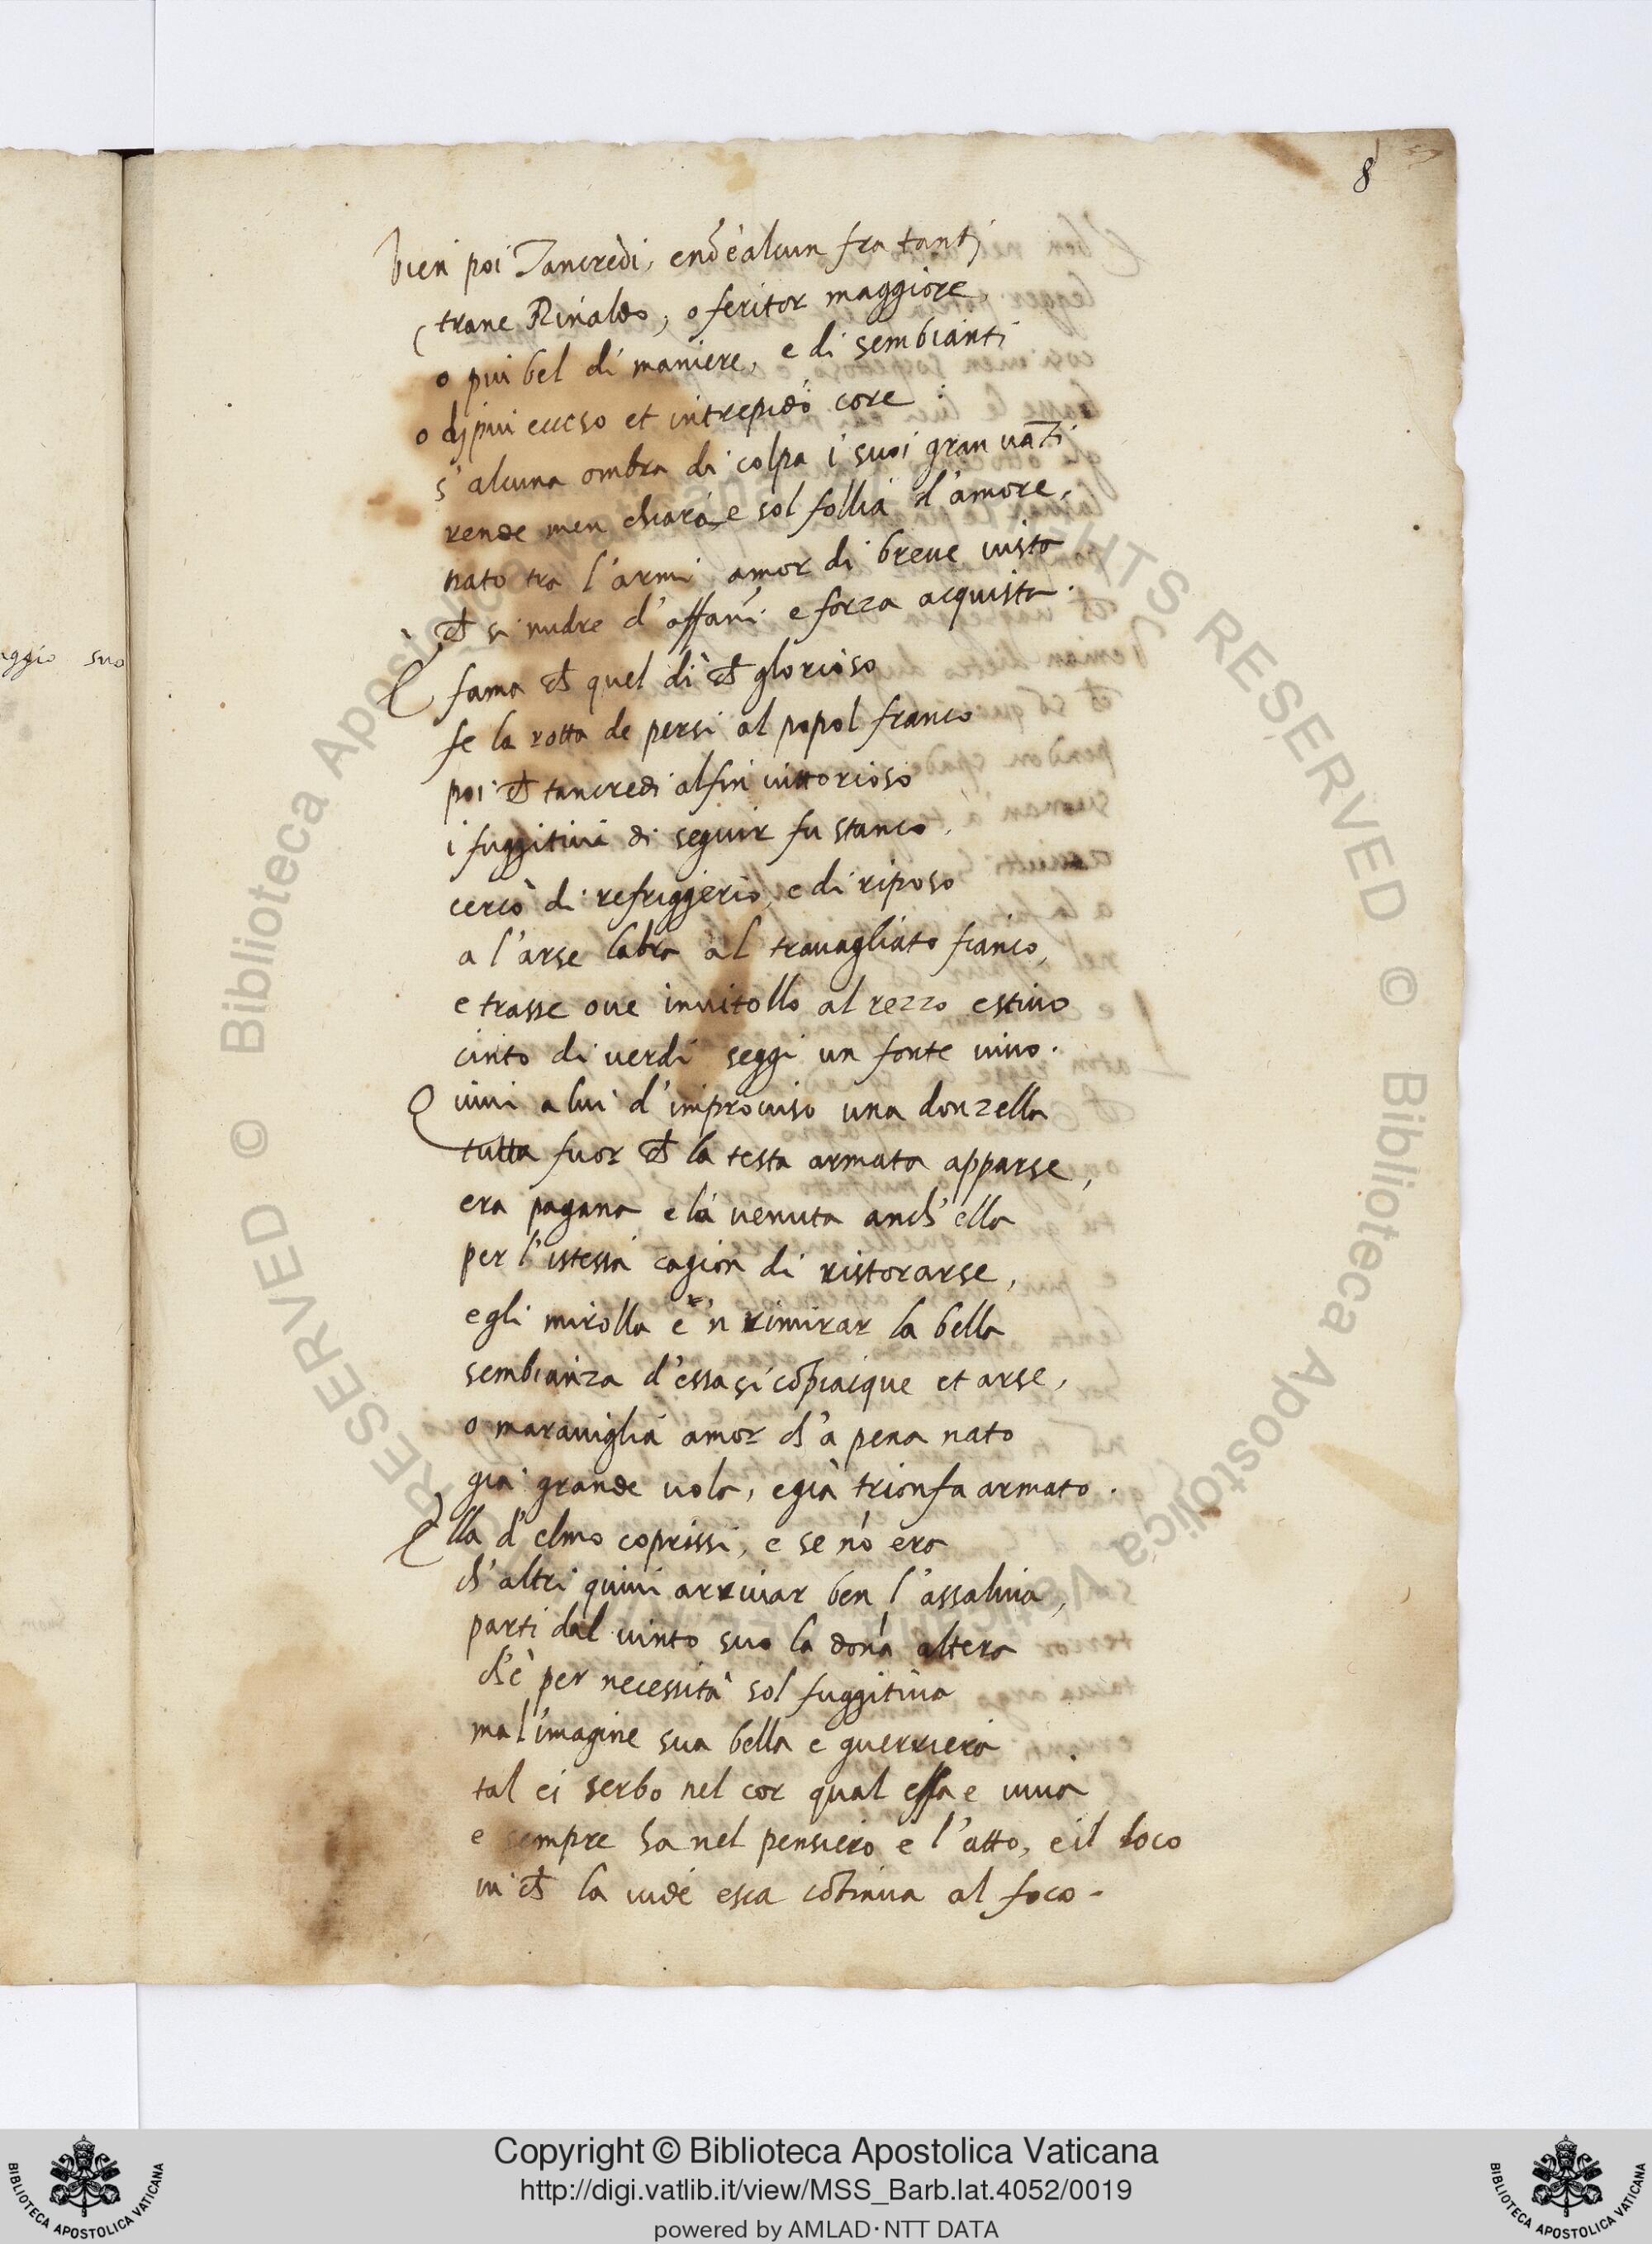 8
aggio suo
vien poi Tancredi, e nō è alcun fra tanti
trane Rinaldo, o feritor maggiore,
o piu bel di maniere, e di sembianti
o di piu eccso et intrepido core :
s' alcuna ombra di colpa i suoi gran vāti
rende men chiara e sol follia d'amore,
nato tra l'armi amor di breve vista
ch si nudre d' affani e forza acquista .
È fama ch quel dì ch glorioso
fe la rotta de persi al popol franco
poi ch tancredi alfin vittorioso
i fuggitivi di seguir fu stanco,
cercò di refriggerio, e di riposo
a l'arse labra al travagliato fianco,
e trasse ove invitollo al rezzo estivo
cinto di verdi seggi un fonte vivo .
Quivi a lui d'improviso una donzella
tutta fuor ch la testa armata apparse,
era pagana e là venuta anch' ella
per l'istessa cagion di ristorarse,
egli mirolla e 'n rimirar la bella
sembianza d'essa si cōpiacque et arse,
o maraviglia amor ch' a pena nato
già grande vola, e già trionfa armato .
Ella d' elmo coprissi, e se nō era
ch' altri quivi arrivar ben l' assaliva,
parti dal vinto suo la dona altera
ch' è per necessità sol fuggitiva
ma l'imagine sua bella e guerriera
tal ei serbo nel cor qual essa e viva
e sempre ha nel pensiero e l'atto, e il loco
in ch la vide esca cōtinua al foco .
© Biblioteca Apostolica Vaticana ALL RIGHTS RESERVED
Copyright © Biblioteca Apostolica Vaticana
http://digi.vatlib.it/view/MSS_Barb.lat.4052/0019
powered by AMLAD·NTT DATA
BIBLIOTECA APOSTOLICA VATICANA
BIBLIOTECA APOSTOLICA VATICANA